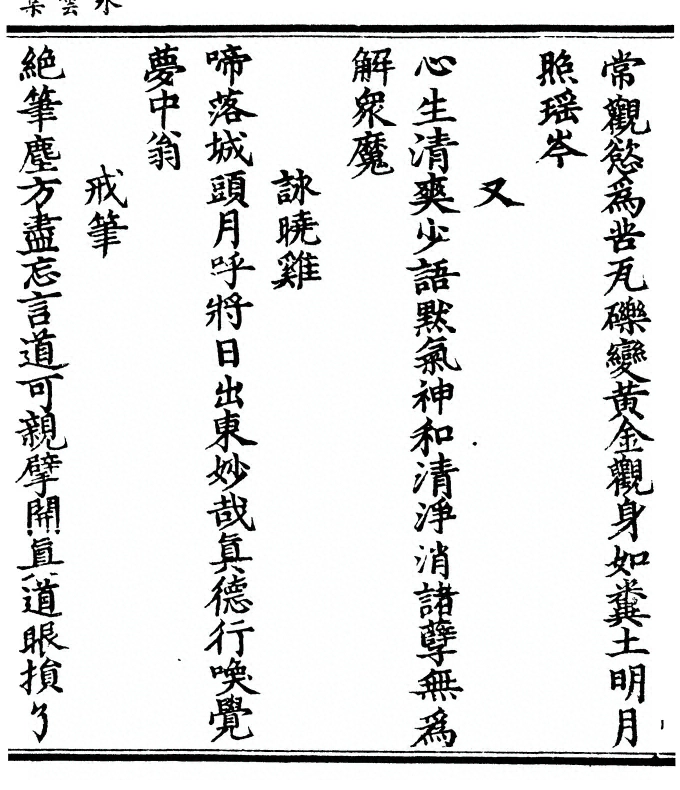 常觀慾爲苦瓦礫變黃金觀身如糞土明月
照瑶岑
又
心生清爽少語默氣神和清淨消諸孽無爲
解衆魔
詠曉雞
啼落城頭月呼將日出東妙哉眞德行喚覺
夢中翁
戒筆
絕筆塵方盡忘言道可親擘開眞道眼損了